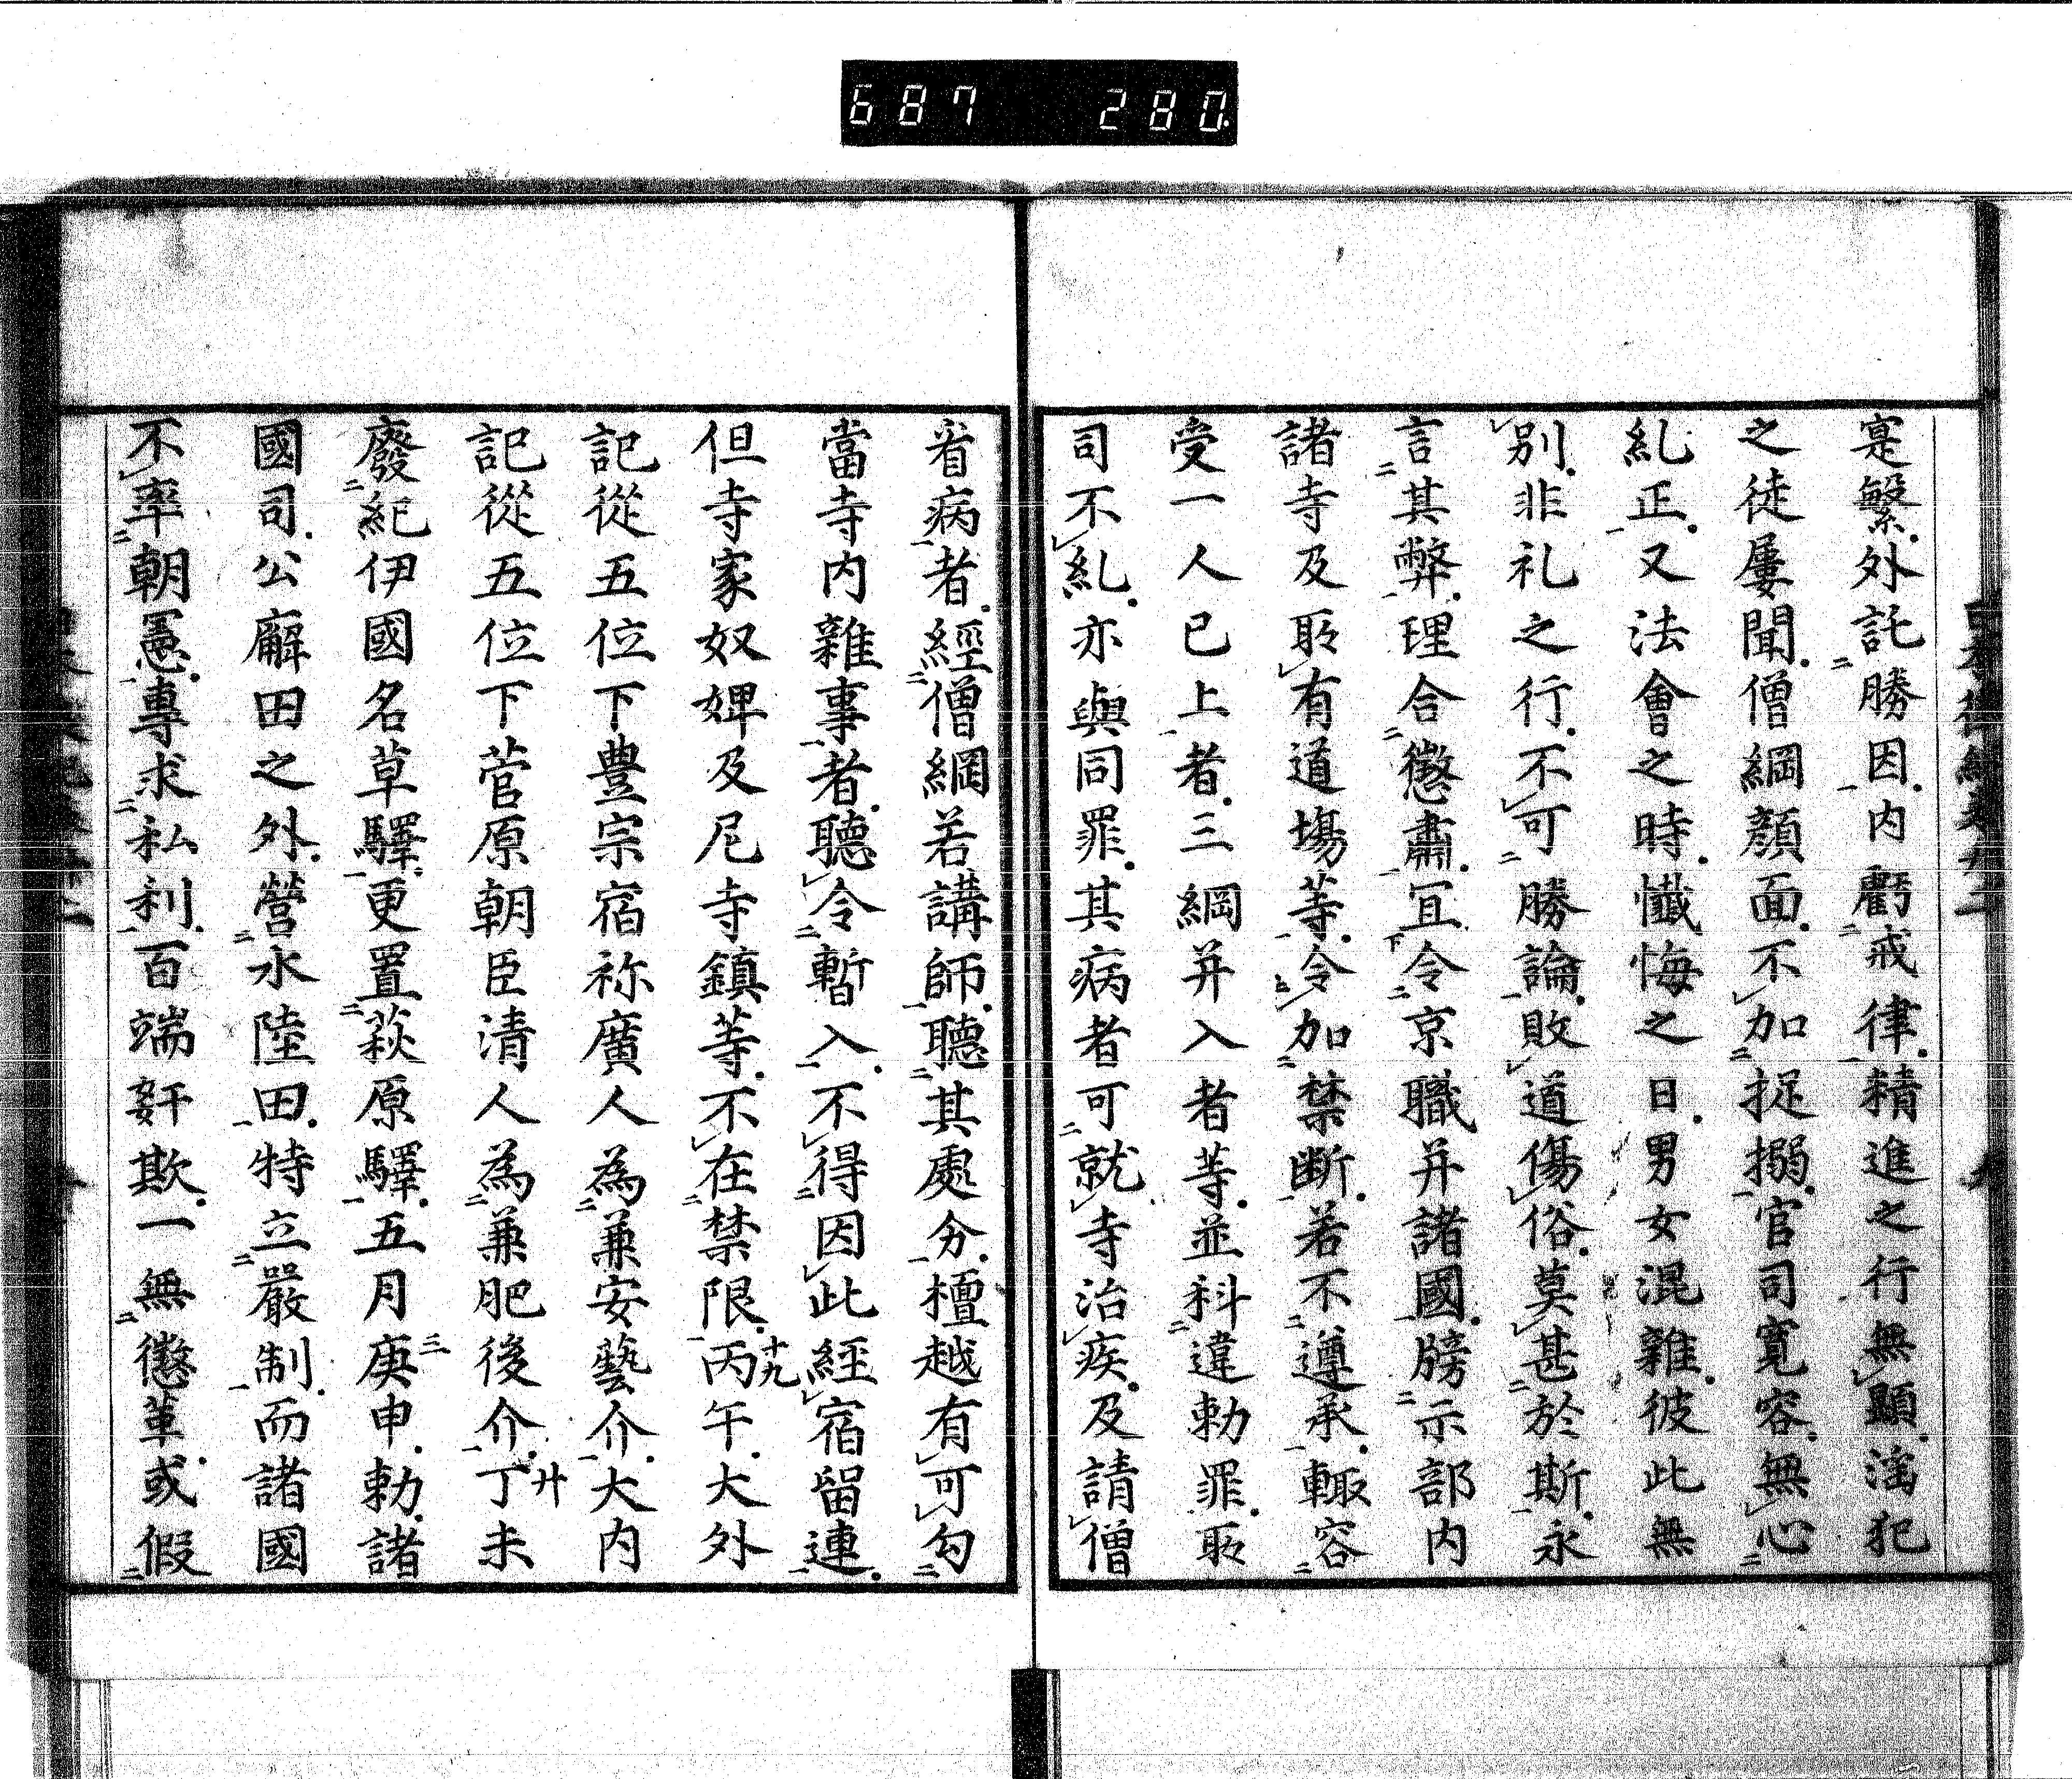 687 280
寔繁外託勝因内虧戒律精進之行無顯滛犯
之徒屢聞僧綱顔面不加捉搦官司寛容無心
糺正又法會之時懴悔之日男女混雜彼此無
別非礼之行不可勝論敗道傷俗莫甚於斯永
言其弊理合懲肅冝令京職并諸國牓示部内
諸寺及聅有道塲䓁令加禁断若不遵承輙容
受一人已上者三綱并入者䓁並科違勅罪聅
司不糺亦與同罪其病者可就寺治疾及請僧
省病者經僧綱若講師聽其處分檀越有可勾
當寺内雜事者聽令暫入不得因此經宿留連
但寺家奴婢及尼寺鎮䓁不在禁限丙午大外
十九
記從五位下豊宗宿祢廣人為兼安藝介大内
記從五位下菅原朝臣清人為兼肥後介丁未
廾
廢紀伊國名草驛更置萩原驛五月庚申勅諸
三
國司公廨田之外營水陸田特立嚴制而諸國
不率朝憲專求私利百端姧欺一無懲革或假